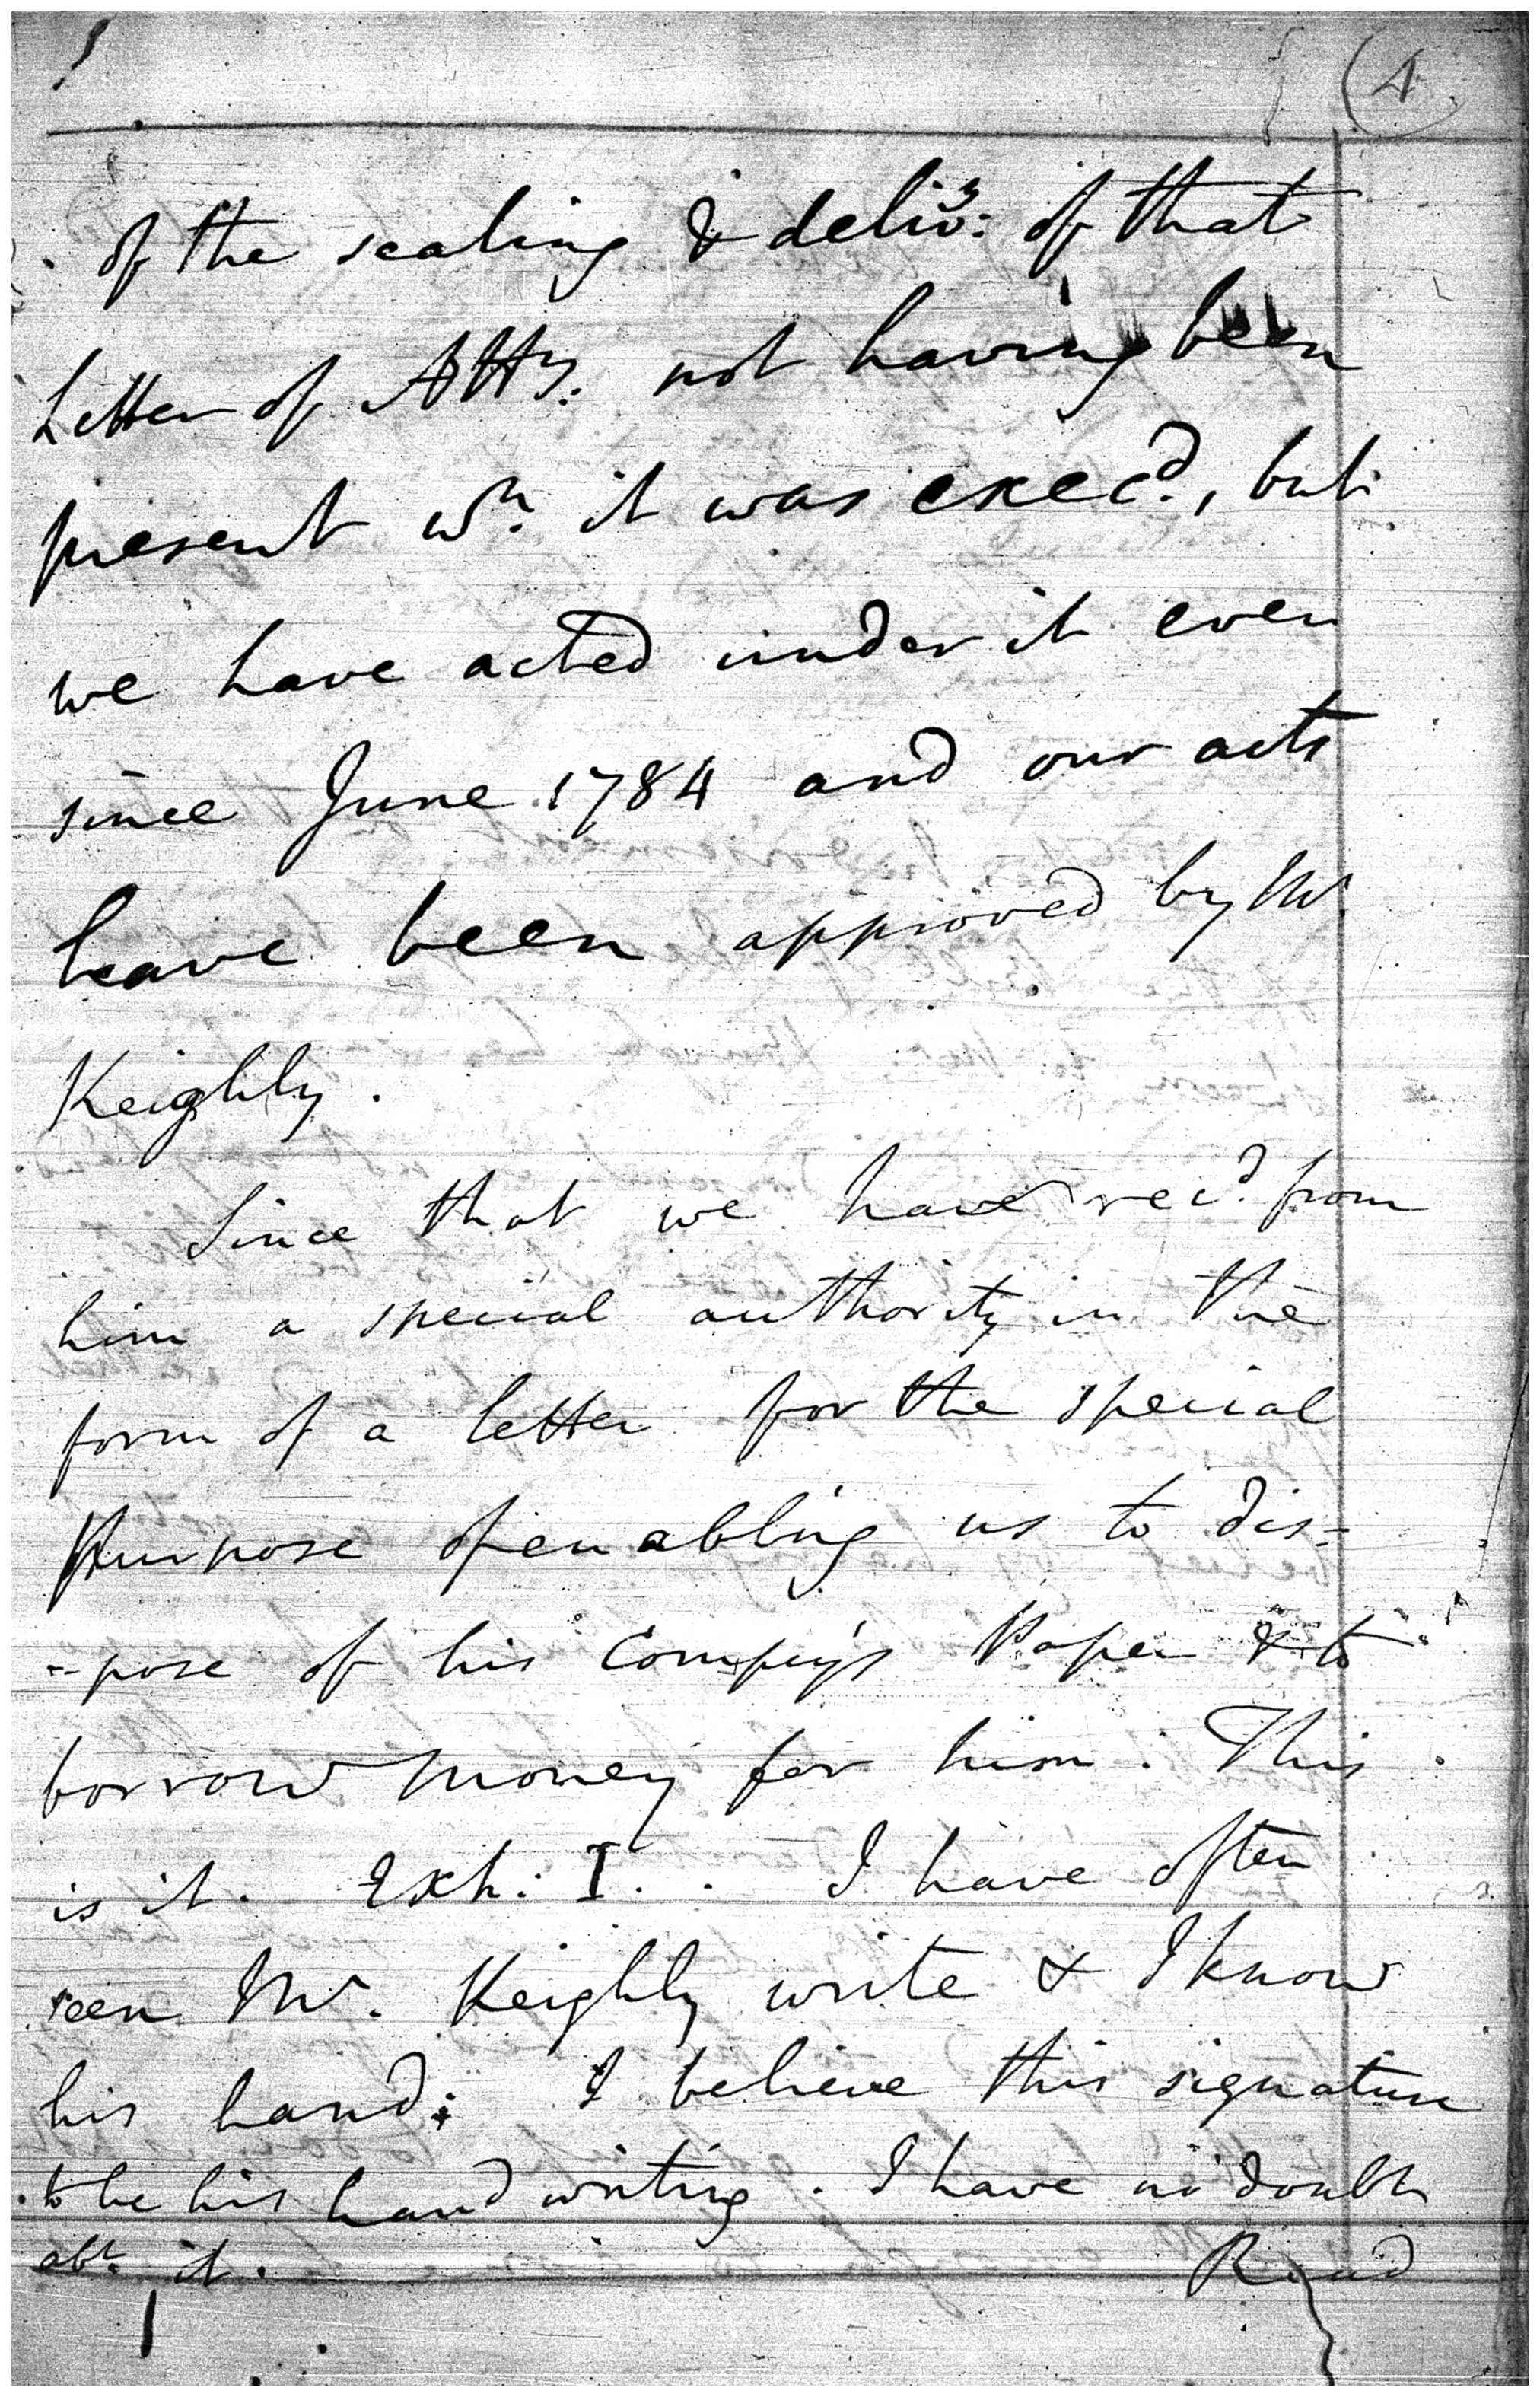 (4)
of the sealing & delivy: of that
Letter of Atty. not having been
present wn. it was execd., but
we have acted under it ever
since June 1784 and our acts
have been approved by Mr
Keighly.
Since that we have recd. from
him a special authority in the
form of a letter for the special
Purpose of enabling us to dis-
-pose of his Compy's Paper & to
borrow money for him. This
is it. Exh: I.. I have often
seen Mr. Keighly write & I know
his hand: I believe this signature
to be his hand writing. I have no doubt
abt. it. Read